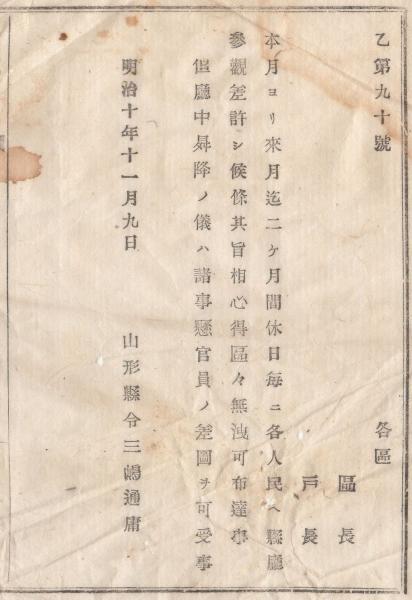 乙第九十號
各區
區長
戸長
本月ヨリ來月迄二ケ月間休日每ニ各人民ヘ縣廳
參觀差許シ候條其旨相心得區々無洩可布達事
但廳中昇降ノ儀ハ諸事懸官員ノ差圖ヲ可受事
明治十年十一月九日
山形縣令三嶋通庸